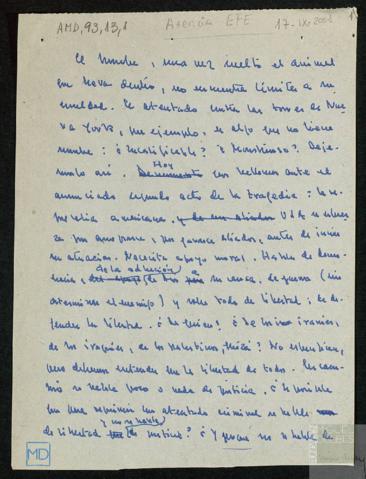 AMD, 93, 13, 1 Atención EFE 17-IX-2001 1
El hombre, una vez suelto el animal
que lleva dentro, no encuentra límites a su
crueldad. El atentado contra las torres de Nue-
va York, por ejemplo, es algo que no tiene
nombre: ¿Incalificable? ¿Monstruoso? Deje-
moslo así. Hoy nos hallamos ante el
anunciado segundo acto de la tragedia: la re-
presalia americana. USA se esfuer-
za por asegurarse, por ganarse aliados, antes de iniciar
su actuación. Necesita apoyo moral. Habla de demo-
cracia, de la adhesión de a su causa, de guerra (sin
determinar el enemigo) y sobre todo de libertad. De de-
fender la libertad. ¿De quién? ¿De los iraníes,
de los iraquíes, de los palestinos, quizá? No especifican,
pero debemos entender que la libertad de todos. En cam-
bio se habla poco o nada de justicia. ¿Es posible
que para reprimir un atentado criminal se hable
de libertad y no se hable de justicia? ¿Y por qué no se habla de
MD